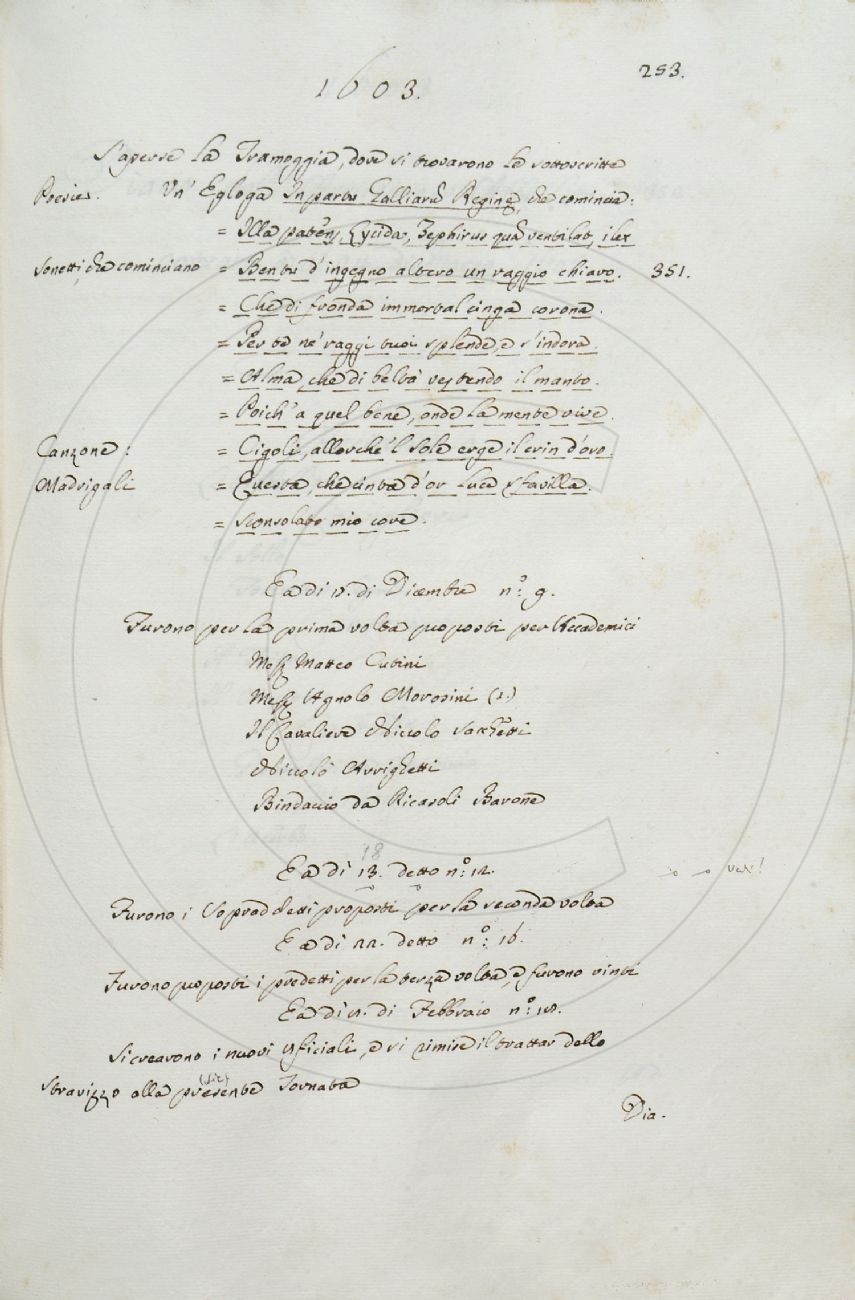 1603.
253.
S'aperse la Tramoggia, dove si trovarono le sottoscritte
Poesie. Un' Egloga In partu Galliarũ Reginę che comincia:
= Illa patens, Lycida, Zephirus quã ventilat, ilex
Sonetti, che cominciano = Ben tu d'ingegno altero un raggio chiaro. 351.
= Che di fronda immortal cinga corona.
= Per te ne' raggi tuoi splende, e s'indora.
= Alma, che di beltà vestendo il manto.
= Poich' a quel bene, onde la mente vive.
Canzone: = Cigoli, allorchè 'l Sole erge il crin d'oro.
Madrigali = Questa, che cinta d'or luce sfavilla.
= Sconsolato mio core.
E a di di Dicembre n.° 9.
Furono per la prima volta proposti per Accademici
Mess. Matteo Cutini
Mess. Agnolo Morosini (1.)
Il Cavaliere Niccolo Sacchetti
Niccolò Arrighetti
Bindaccio da Ricasoli Barone
18
E a dì 13. detto n.° 12.
Furono i Sopraddetti proposti per la seconda volta
E a di 22. detto n.° 16.
Furono proposti i predetti per la terza volta, e furono vinti
E a di di Febbraio n.°
Si crearono i nuovi uficiali, e si rimise il trattar dello
(sic)
Stravizzo alla presente Tornata
Dia.